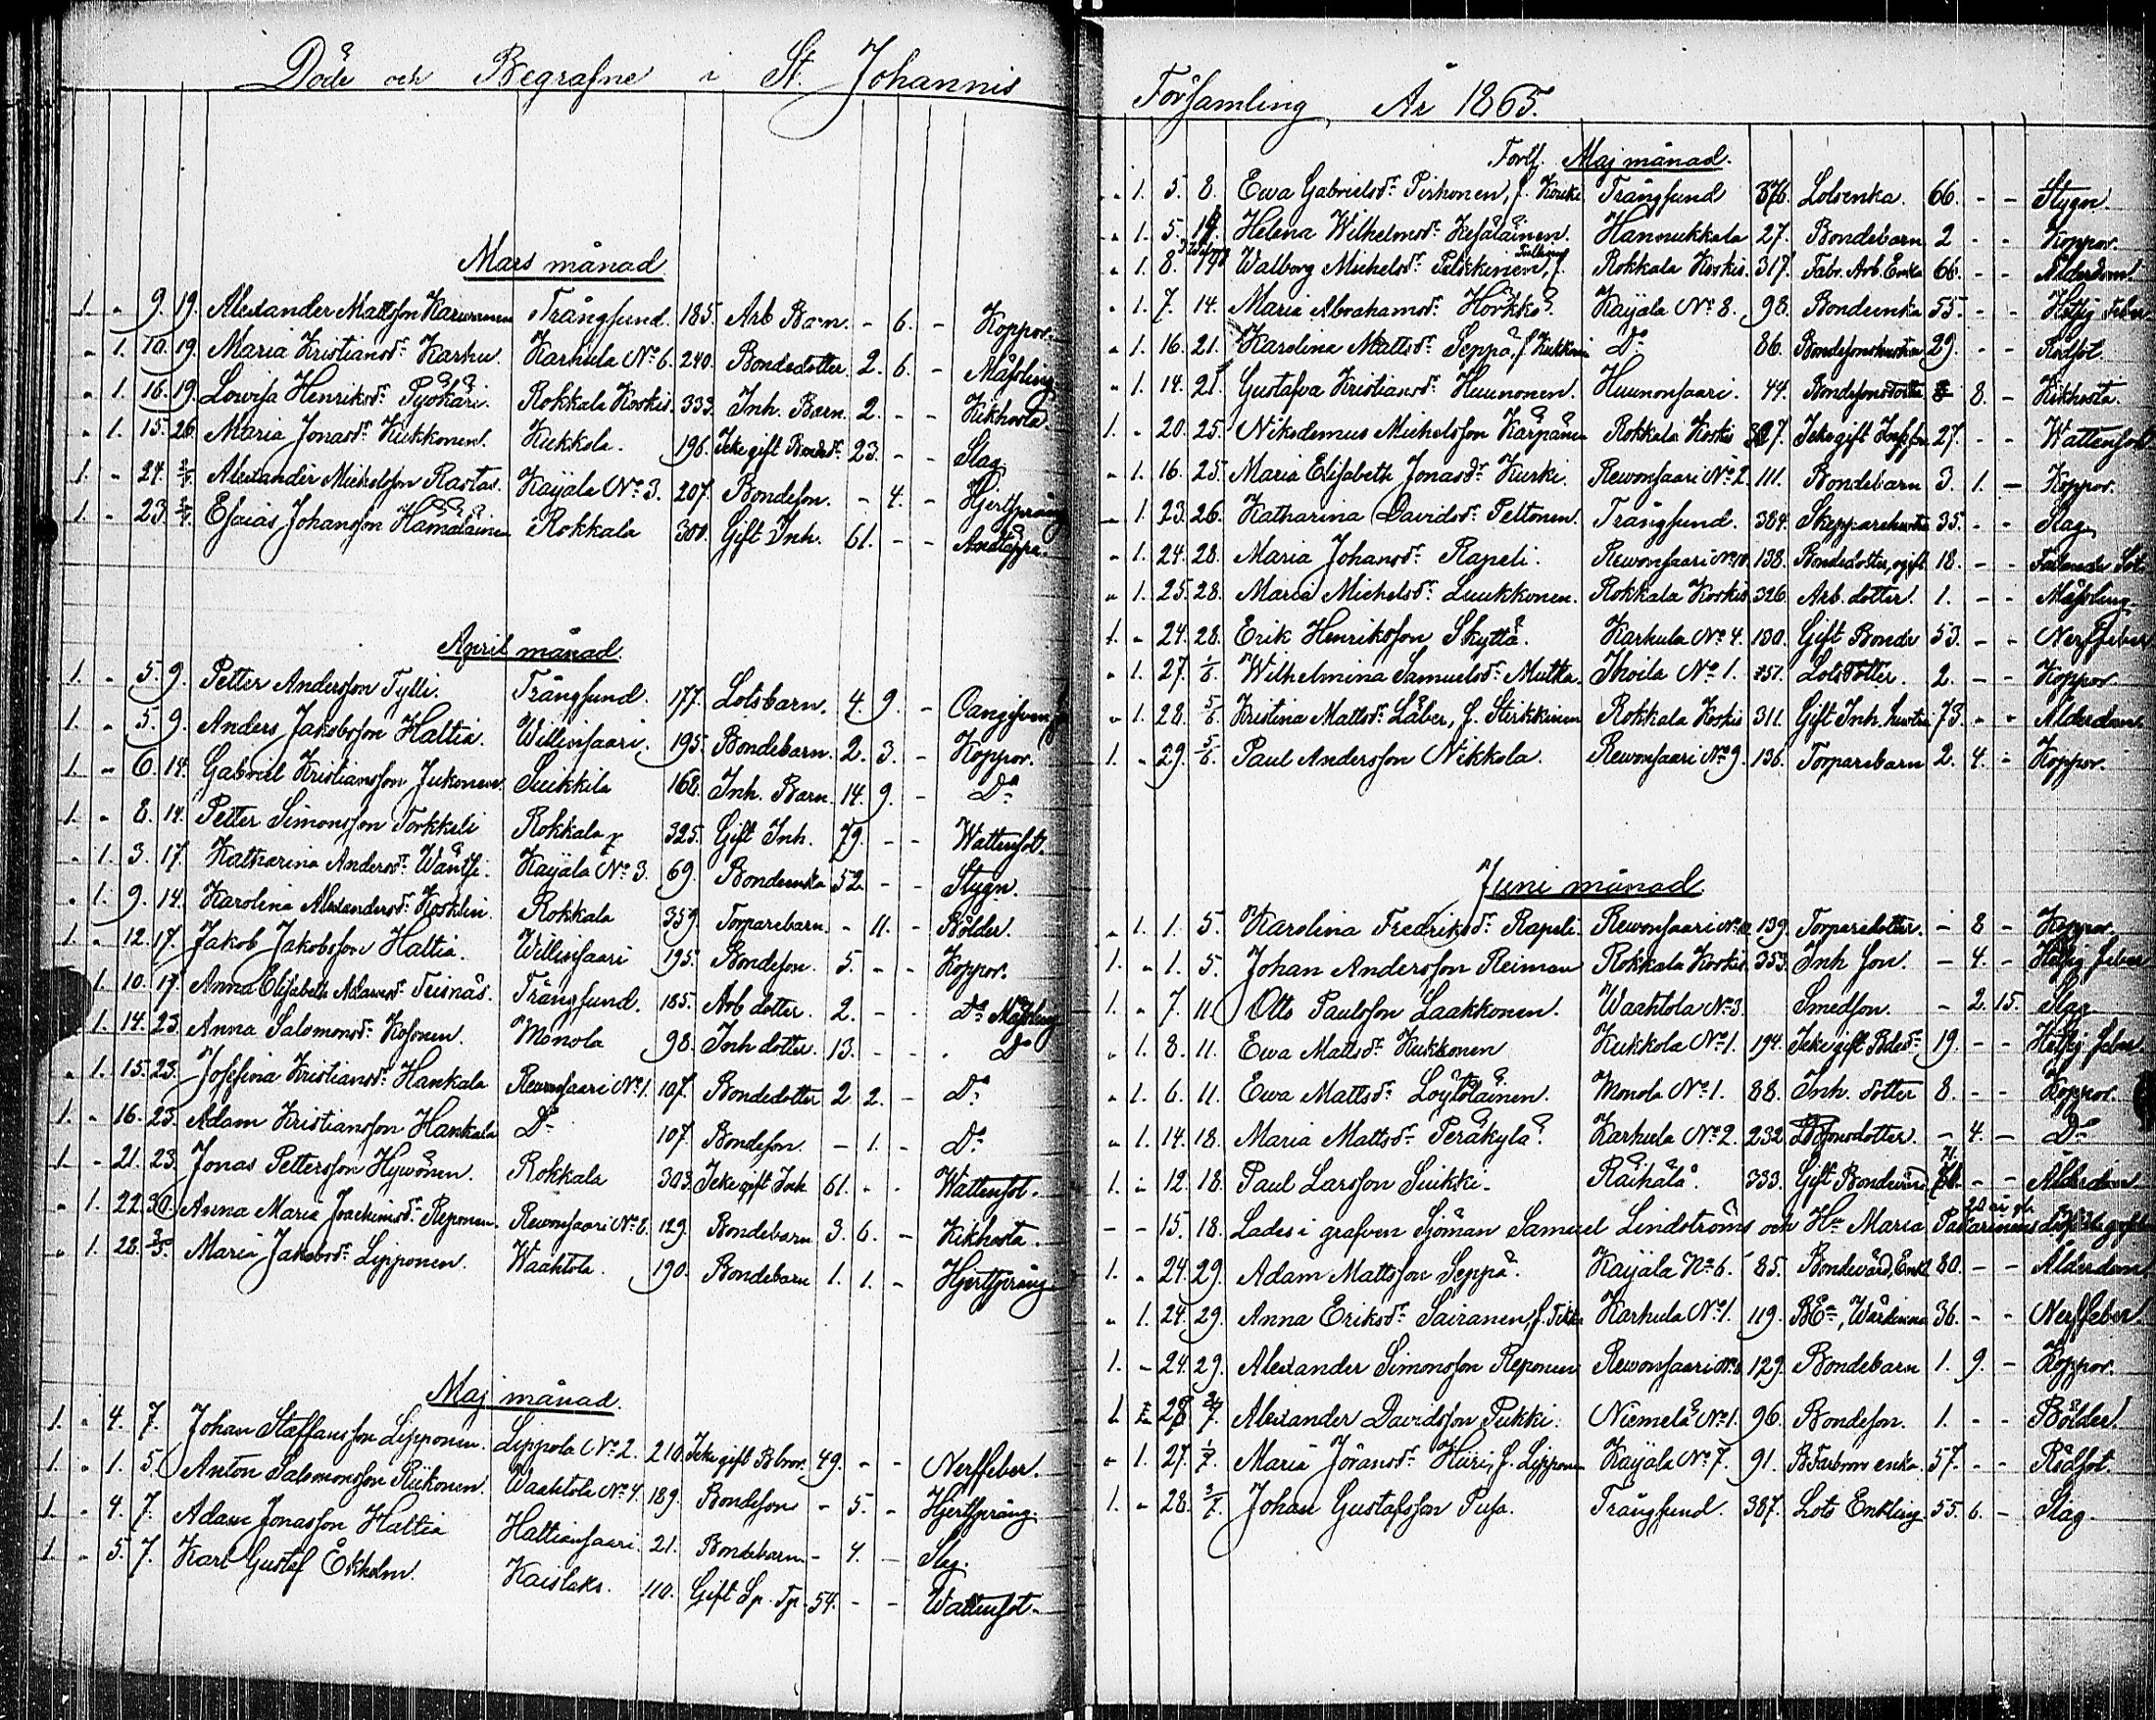 Döde och Begrafne i St. Johannis
Mars månad
1. - 9. 19. Alexander Mattsson Karvonen Trångsund. 185. Arb Barn. - 6. - Koppor.
- 1. 10. 19. Maria Kristiansdr Karhu Karhula No 6. 240. Bondedotter. 2. 6. - Mässling
- 1. 16. 19. Lovisa Henriksdr Pyökäri. Rokkala Koskis. 333. Inh. Barn. 2. - - Kikhosta
- 1. 15. 26. Maria Jonasdr Kukkonen. Kukkola. 196. Icke gift Bondedr. 23. - - Slag
1. - 24. 2/4. Alexander Michelsson Rastas. Kaijala No 3. 207. Bondeson. - 4. - Hjertsprång
1. - 23. 2/4. Esaias Johansson Hämäläinen Rokkala 300. Gift Inh. 61. - - Andtäppa.
April månad.
1. - 5. 9. Petter Andersson Tylli. Trångsund. 177. Lotsbarn. 4. 9. - Oangifven
1. - 5. 9. Anders Jakobsson Haltia. Willinsaari. 195. Bondebarn. 2. 3. - Koppor.
1. - 6. 14. Gabriel Kristiansson Jukonen. Suikkila 168. Inh. Barn. 14. 9. - Do
1. - 8. 14. Petter Simonsson Torkkeli Rokkala 325. Gift Inh. 79. - - Wattensot.
- 1. 3. 17. Katharina Andersdr Wäntsi. Kaijala No 3. 69. Bondeenka 52. - - Stygn.
- 1. 9. 14. Karolina Alexandersdr Koskelin. Rokkala 359. Torparebarn. - 11. - Bölder.
1. - 12. 17. Jakob Jakobsson Haltia. Willinsaari 195. Bondeson. 5. - - Koppor.
1. 10. 17. Anna Elisabeth Adamsdr Teisnäs. Trångsund. 185. Arb dotter. 2. - - Do Mässling
1. 14. 23. Anna Salomonsdr Kosonen. Monola 98. Inh dotter. 13. - - Do
- 1. 15. 23. Josefina Kristiansdr Hankala Revonsaari No 1. 107. Bondedotter 2. 2. - Do
1. - 16. 23. Adam Kristiansson Hankala Do 107. Bondeson. - 1. - Do
1. - 21. 23. Jonas Pettersson Hyvönen. Rokkala 303. Icke gift Inh. 61. - - Wattensot.
- 1. 22. 30. Anna Maria Joachimsdr Reponen. Revonsaari No 8. 129. Bondebarn 3. 6. - Kikhosta.
- 1. 28. 3/5. Maria Jakobsdr Lipponen. Waahtola. 190. Bondebarn 1. 1. - Hjertsprång
Maj månad.
1. - 4. 7. Johan Staffansson Lipponen. Lippola No 2. 210. Icke gift Bbror. 49. - - Nerffeber.
1. - 1. 5. Anton Salomonsson Riikonen. Waahtola No 4. 189. Bondeson - 5. - Hjertsprång.
1. - 4. 7. Adam Jonasson Haltia Haltiansaari 21. Bondebarn - 4. - Slag.
1. - 5. 7. Karl Gustaf Ekholm. Kaislaks. 110. Gift Sp. Tp. 54. - - Wattensot.
Församling, År 1865.
Forts. Maj månad.
- 1. 5. 8. Ewa Gabrielsdr Pirhonen, f. Kouki Trångsund 376. Lotsenka. 66. - - Stygn.
- 1. 5. Helena Wilhelmsdr Kesäläinen. Hannukkala 27. Bondebarn 2 - - Koppor.
- 1. 8. Walborg Michelsdr Pelkkinen, f. Rokkala Koskis. 317. Fabr. Arb. Enka 66. - - Ålderdom.
- 1. 7. 14. Maria Abrahamsdr Horkkö. Kaijala No 8. 98. Bondeenka 55. - - Hettig Feber
- 1. 16. 21. Karolina Mattsdr Seppä, f. Kukkonen Do 86. Bondesonshustru 29. - - Rödsot.
- 1. 14. 21. Gustafva Kristiansdr Huunonen. Huunonsaari. 44. Bondesonsdotter 8. - Kikhosta.
1. - 20. 25. Nikodemus Michelsson Karpänen Rokkala Koskis 327. Icke gift Inhson 27. - - Wattensot
- 1. 16. 25. Maria Elisabeth Jonasdr Kurki. Revonsaari No 2. 111. Bondebarn 3. 1. - Koppor.
- 1. 23. 26. Katharina Davidsdr Peltonen. Trångsund. 384. Skepparehustru 35. - - Slag
- 1. 24. 28. Maria Johansdr Rapeli. Revonsaari No 10. 138. Bondedotter, ogift 18. - - Fallande Sot
- 1. 25. 28. Maria Michelsdr Luukkonen. Rokkala Koskis 326. Arb. dotter. 1. - - Mässling
1. - 24. 28. Erik Henriksson Skyttä. Karhula No 4. 130. Gift Bonde 53. - - Nerffeber
- 1. 27. 1/6. Wilhelmina Samuelsdr Mutka. Ihoila No 1. 151. Lotsdotter. 2. - - Koppor.
- 1. 28. 5/6. Kristina Mattsdr Låber, f. Stirkkinen Rokkala Koskis 311. Gift Inh. hustru 73. - - Ålderdom
1. - 29. 5/6. Paul Andersson Nikkola. Revonsaari No 9. 136. Torparebarn 2. 4. - Koppor.
Juni månad
- 1. 1. 5. Karolina Fredriksdr Rapeli. Revonsaari No 10 139. Torparedotter. - 8 - Koppor.
1. - 1. 5. Johan Andersson Reiman Rokkala Koskis 353. Inh son. - 4. - Hettig feber
1. - 7. 11. Otto Paulsson Laakkonen. Waahtola No 3. Smedson. - 2. 15. Slag
- 1. 8. 11. Ewa Mattsdr Kukkonen Kukkola No 1. 194. Icke gift Bdedr 19. - - Hettig feber
- 1. 6. 11. Ewa Mattsdr Löytöläinen. Monola No 1. 88. Inh. dotter 8. - - Koppor.
- 1. 14. 18. Maria Mattsdr Peräkylä. Karhula No 2. 232. Bdsonsdotter. - 4. - Do
1. - 12. 18. Paul Larsson Suikki. Räihälä. 333. Gift Bondevärd 71. - - Ålderdom
- - 15. 18. Lades i grafven Sjöman Samuel Lindströms och Hu Maria Pakarinens
1. - 24. 29. Adam Mattsson Seppä. Kaijala No 6. 85. Bondevärd, Enkl 80. - - Ålderdom
- 1. 24. 29. Anna Eriksdr Sairanen, f. Tikka Karhula No 1. 119. BEa, Wärdinna 36. - - Nerffeber.
1. - 24. 29. Alexander Simonsson Reponen Revonsaari No 8 129. Bondebarn 1. 9. - Koppor.
1. 28. Alexander Davidsson Pukki. Niemelä No 1. 96. Bondeson. 1. - - Bölder.
- 1. 27. 1/7. Maria Jöransdr Hiiri, f. Lipponen Kaijala No 7. 91. BFarbrors enka. 57. - - Rödsot.
1. - 28. 3/7. Johan Gustafsson Pusa. Trångsund. 387. Lots Enkling 55. 6. - Slag.